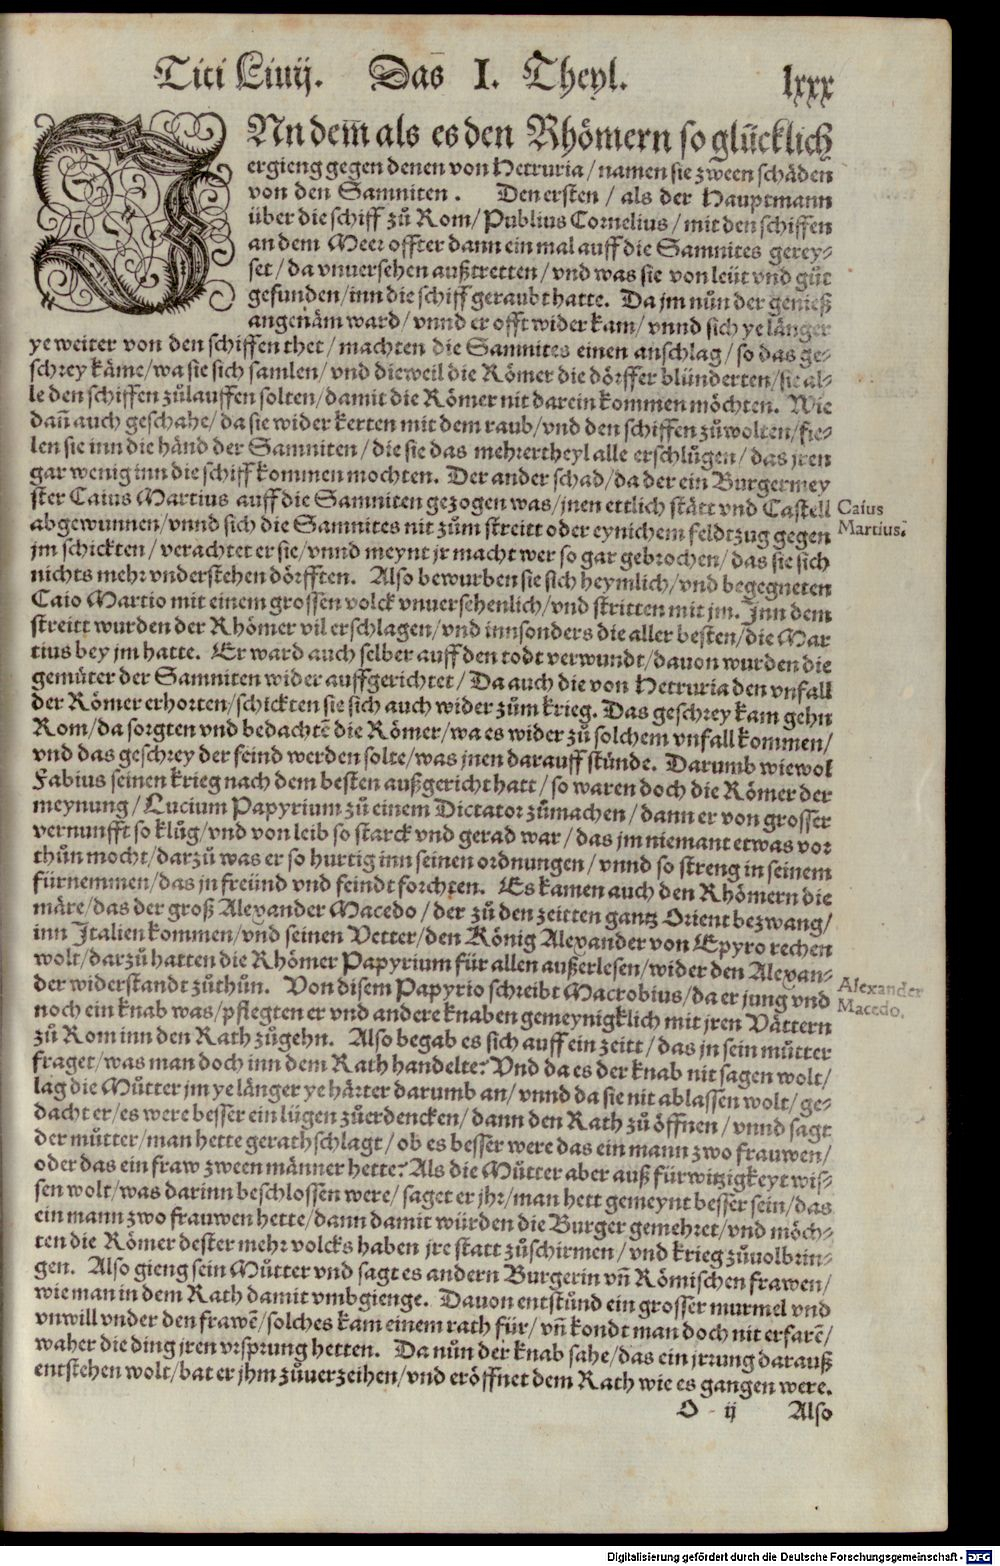 Titi Liuij. Das I. Theyl. lxxx
INn dem̃ als es den Rhömern so glücklich
ergieng gegen denen von Hetruria / namen sie zween schäden
von den Samniten. Den ersten / als der Hauptmann
über die schiff zů Rom / Publius Cornelius / mit den schiffen
an dem Meer offter dann ein mal auff die Samnites gerey-
set / da vnuersehen außtretten / vnd was sie von leüt vnd gůt
gefunden / inn die schiff geraubt hatte. Da jm nůn der genieß
angenäm ward / vnnd er offt wider kam / vnnd sich ye länger
ye weiter von den schiffen thet / machten die Samnites einen anschlag / so das ge-
schrey käme / wa sie sich samlen / vnd dieweil die Römer die dörffer blünderten / sie al-
le den schiffen zůlauffen solten / damit die Römer nit darein kommen möchten. Wie
dañ auch geschahe / da sie wider kerten mit dem raub / vnd den schiffen zůwolten / fie-
len sie inn die händ der Samniten / die sie das mehrertheyl alle erschlůgen / das jren
gar wenig inn die schiff kommen mochten. Der ander schad / da der ein Burgermey
ster Caius Martius auff die Samniten gezogen was / jnen ettlich stätt vnd Castell
abgewunnen / vnnd sich die Samnites nit zům streitt oder eynichem feldtzug gegen
jm schickten / verachtet er sie / vnnd meynt jr macht wer so gar gebrochen / das sie sich
nichts mehr vnderstehen dörfften. Also bewurben sie sich heymlich / vnd begegneten
Caio Martio mit einem grossen volck vnuersehenlich / vnd stritten mit jm. Inn dem
streitt wurden der Rhömer vil erschlagen / vnd innsonders die aller besten / die Mar
tius bey jm hatte. Er ward auch selber auff den todt verwundt / dauon wurden die
gemüter der Samniten wider auffgerichtet / Da auch die von Hetruria den vnfall
der Römer erhorten / schickten sie sich auch wider zům krieg. Das geschrey kam gehn
Rom / da sorgten vnd bedachtẽ die Römer / wa es wider zů solchem vnfall kommen /
vnd das geschrey der feind werden solte / was jnen darauff stünde. Darumb wiewol
Fabius seinen krieg nach dem besten außgericht hatt / so waren doch die Römer der
meynung / Lucium Papyrium zů einem Dictator zůmachen / dann er von grosser
vernunfft so klůg / vnd von leib so starck vnd gerad war / das jm niemant etwas vor
thůn mocht / darzů was er so hurtig inn seinen ordnungen / vnnd so streng in seinem
fürnemmen / das jn freünd vnd feindt forchten. Es kamen auch den Rhömern die
märe / das der groß Alexander Macedo / der zů den zeitten gantz Orient bezwang /
inn Italien kommen / vnd seinen Vetter / den König Alexander von Epyro rechen
wolt / darzů hatten die Rhömer Papyrium für allen außerlesen / wider den Alexan-
der widerstandt zůthůn. Von disem Papyrio schreibt Macrobius / da er jung vnd
noch ein knab was / pflegten er vnd andere knaben gemeynigklich mit jren Vättern
zů Rom inn den Rath zůgehn. Also begab es sich auff ein zeitt / das jn sein můtter
fraget / was man doch inn dem Rath handelte? Vnd da es der knab nit sagen wolt /
lag die Můtter jm ye länger ye härter darumb an / vnnd da sie nit ablassen wolt / ge-
dacht er / es were besser ein lügen zůerdencken / dann den Rath zů öffnen / vnnd sagt
der můtter / man hette gerathschlagt / ob es besser were das ein mann zwo frauwen /
oder das ein fraw zween männer hette? Als die Můtter aber auß fürwitzigkeyt wis-
sen wolt / was darinn beschlossen were / saget er jhr / man hett gemeynt besser sein / das
ein mann zwo frauwen hette / dann damit würden die Burger gemehret / vnd möch-
ten die Römer dester mehr volcks haben jre statt zůschirmen / vnd krieg zůuolbrin-
gen. Also gieng sein Můtter vnd sagt es andern Burgerin vñ Römischen frawen /
wie man in dem Rath damit vmbgienge. Dauon entstůnd ein grosser murmel vnd
vnwill vnder den frawẽ / solches kam einem rath für / vñ kondt man doch nit erfarẽ /
waher die ding jren vrsprung hetten. Da nůn der knab sahe / das ein jrrung darauß
entstehen wolt / bat er jhm zůuerzeihen / vnd eröffnet dem Rath wie es gangen were.
O ij Also
Caius
Martius.
Alexander
Macedo.
Digitalisierung gefördert durch die Deutsche Forschungsgemeinschaft - DFG